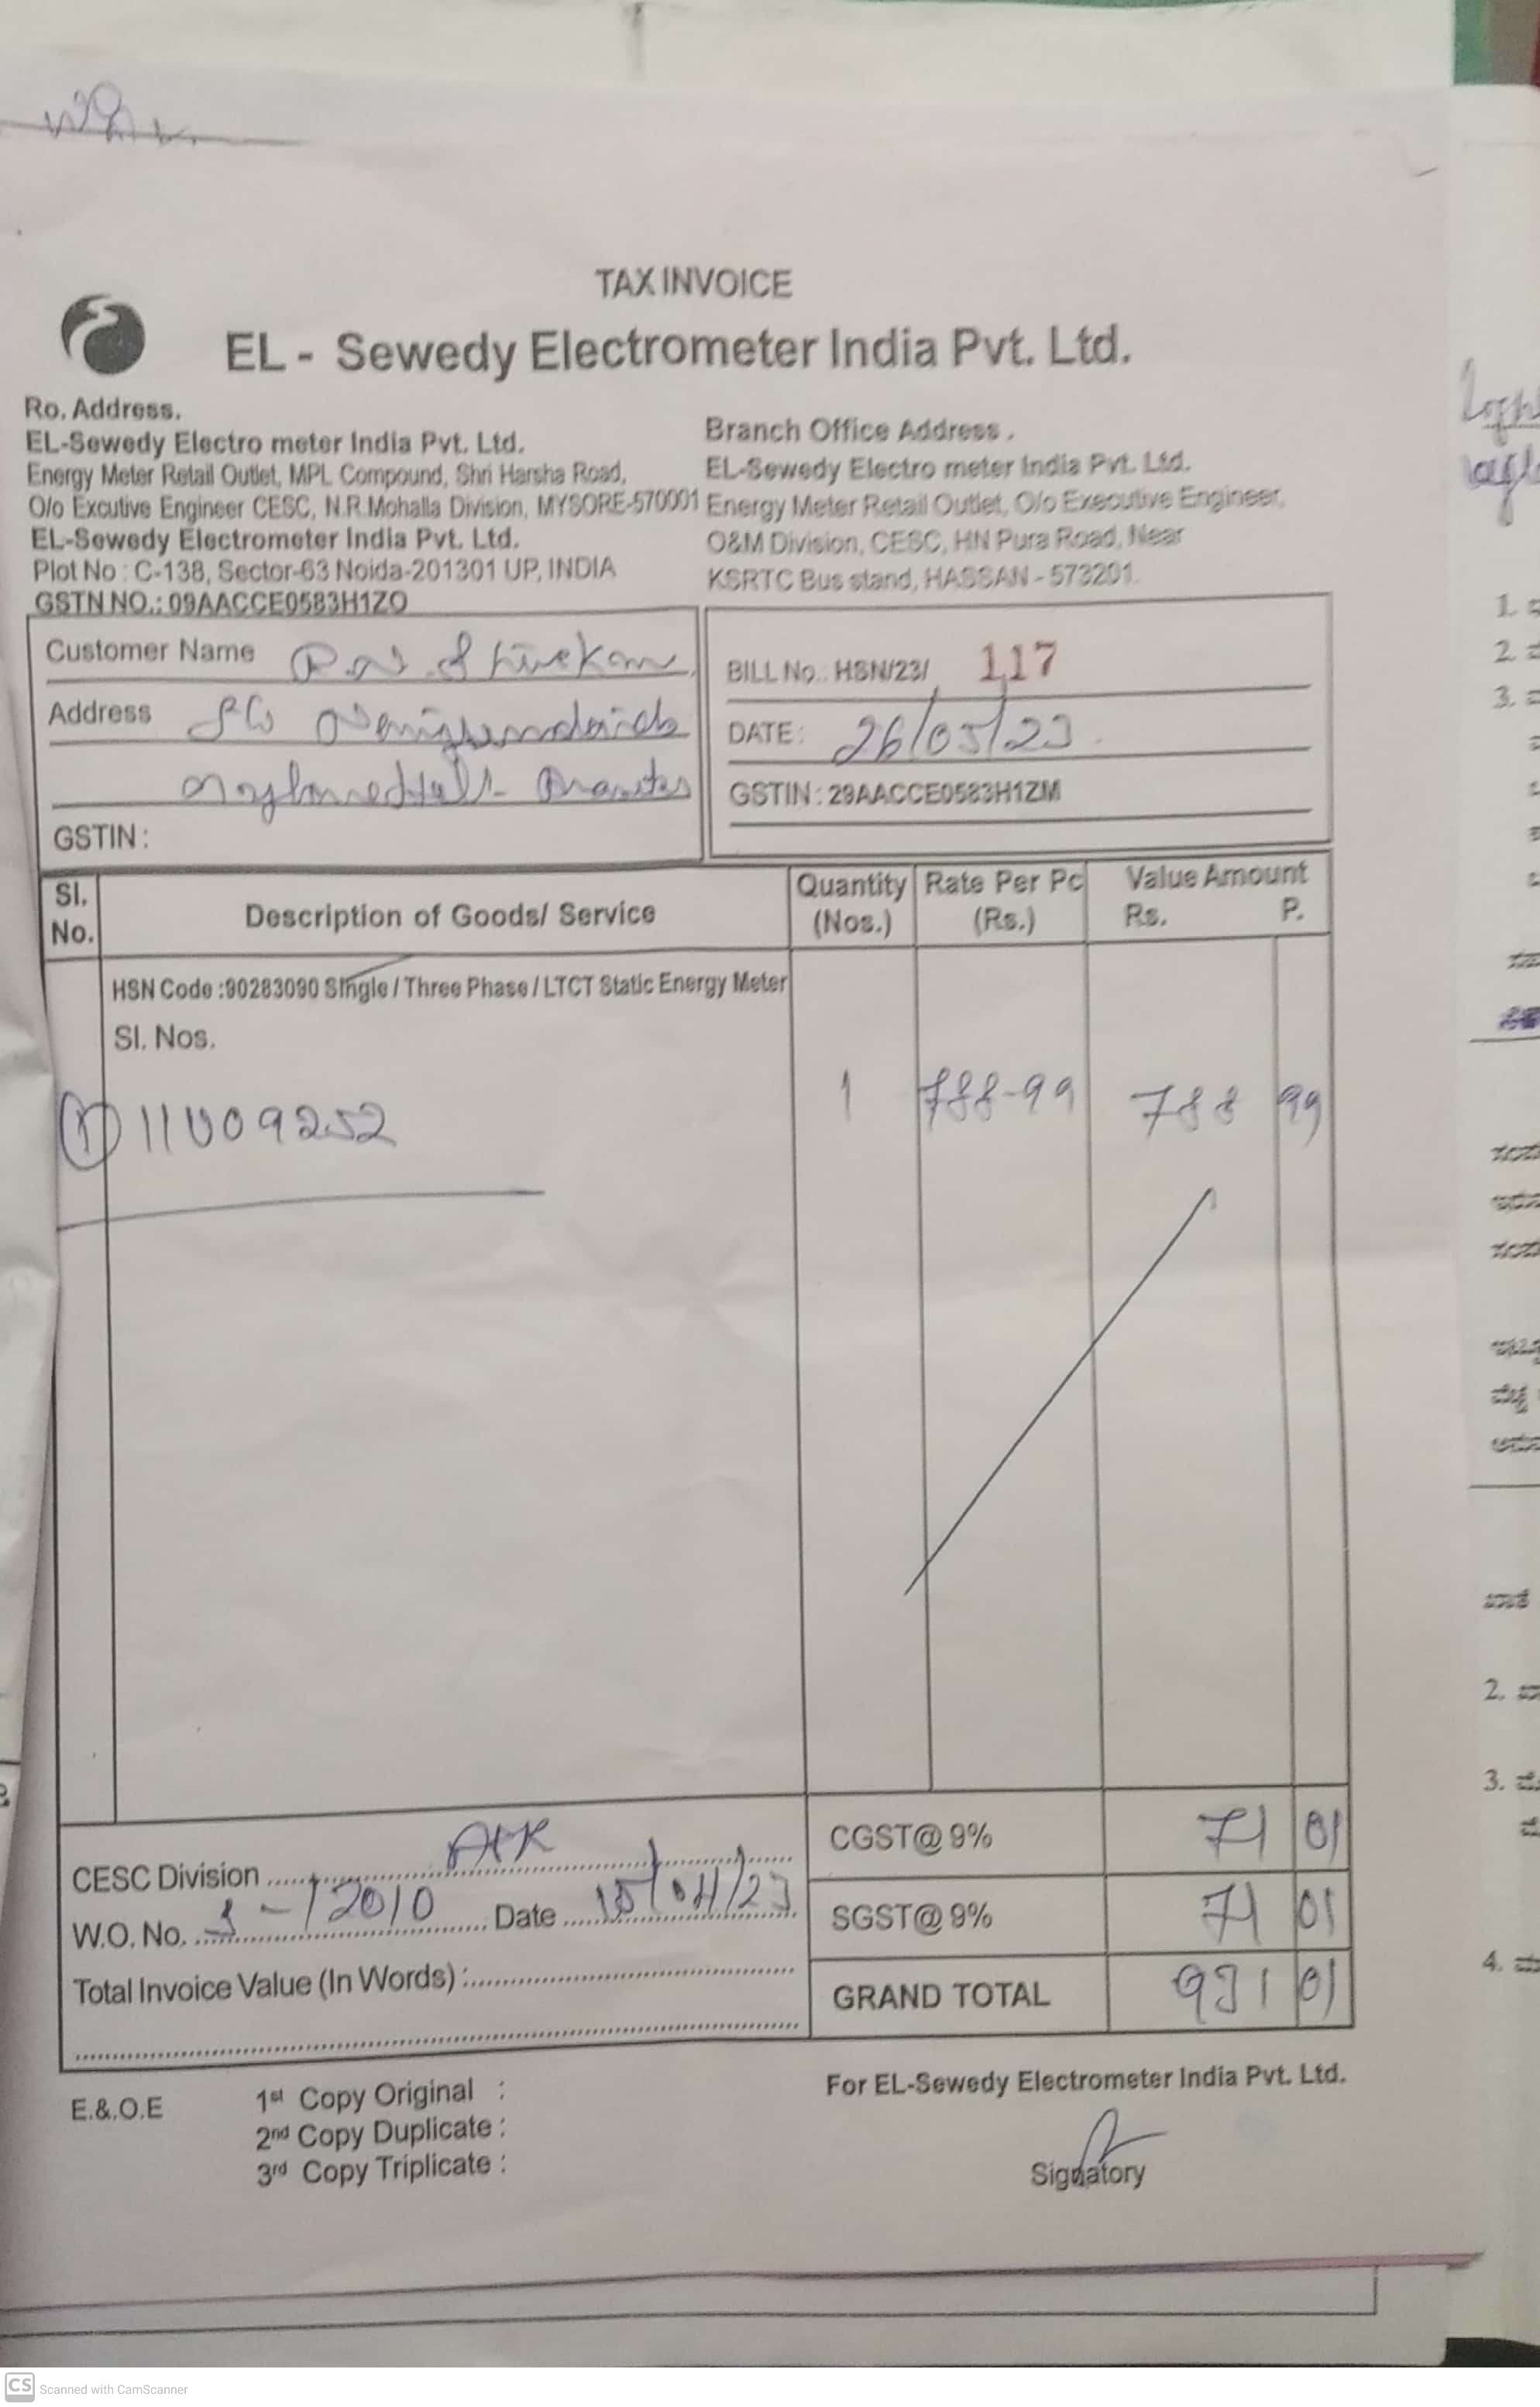 TAX INVOICE
EL - Sewedy Electrometer India Pvt. Ltd.
Ro. Address.
EL-Sewedy Electro meter India Pvt. Ltd.
Energy Meter Retail Outlet, MPL Compound, Shri Harsha Road,
O/o Excutive Engineer CESC, N.R.Mohalla Division, MYSORE-570001
EL-Sewedy Electrometer India Pvt. Ltd.
Plot No : C-138, Sector-63 Noida-201301 UP, INDIA
GSTN NO.: 09AACCE0583H1ZO
Branch Office Address .
EL-Sewedy Electro meter India Pvt. Ltd.
Energy Meter Retail Outlet, O/o Executive Engineer,
O&M Division, CESC, HN Pura Road, Near
KSRTC Bus stand, HASSAN - 573201.
Customer Name
Address
GSTIN :
BILL No.: HSN/23/ 117
DATE: 26/05/23
GSTIN : 29AACCE0583H1ZM
Sl. No.
Description of Goods/ Service
Quantity (Nos.)
Rate Per Pc (Rs.)
Value Amount
Rs. P.
HSN Code :90283090 Single / Three Phase / LTCT Static Energy Meter
Sl. Nos.
1 11009252 1 788-99 788 99
CESC Division
W.O. No. Date 15/04/23
Total Invoice Value (In Words) :
CGST@ 9% 71 01
SGST@ 9% 71 01
GRAND TOTAL 931 01
E.&.O.E
1st Copy Original :
2nd Copy Duplicate :
3rd Copy Triplicate :
For EL-Sewedy Electrometer India Pvt. Ltd.
Signatory
CS Scanned with CamScanner